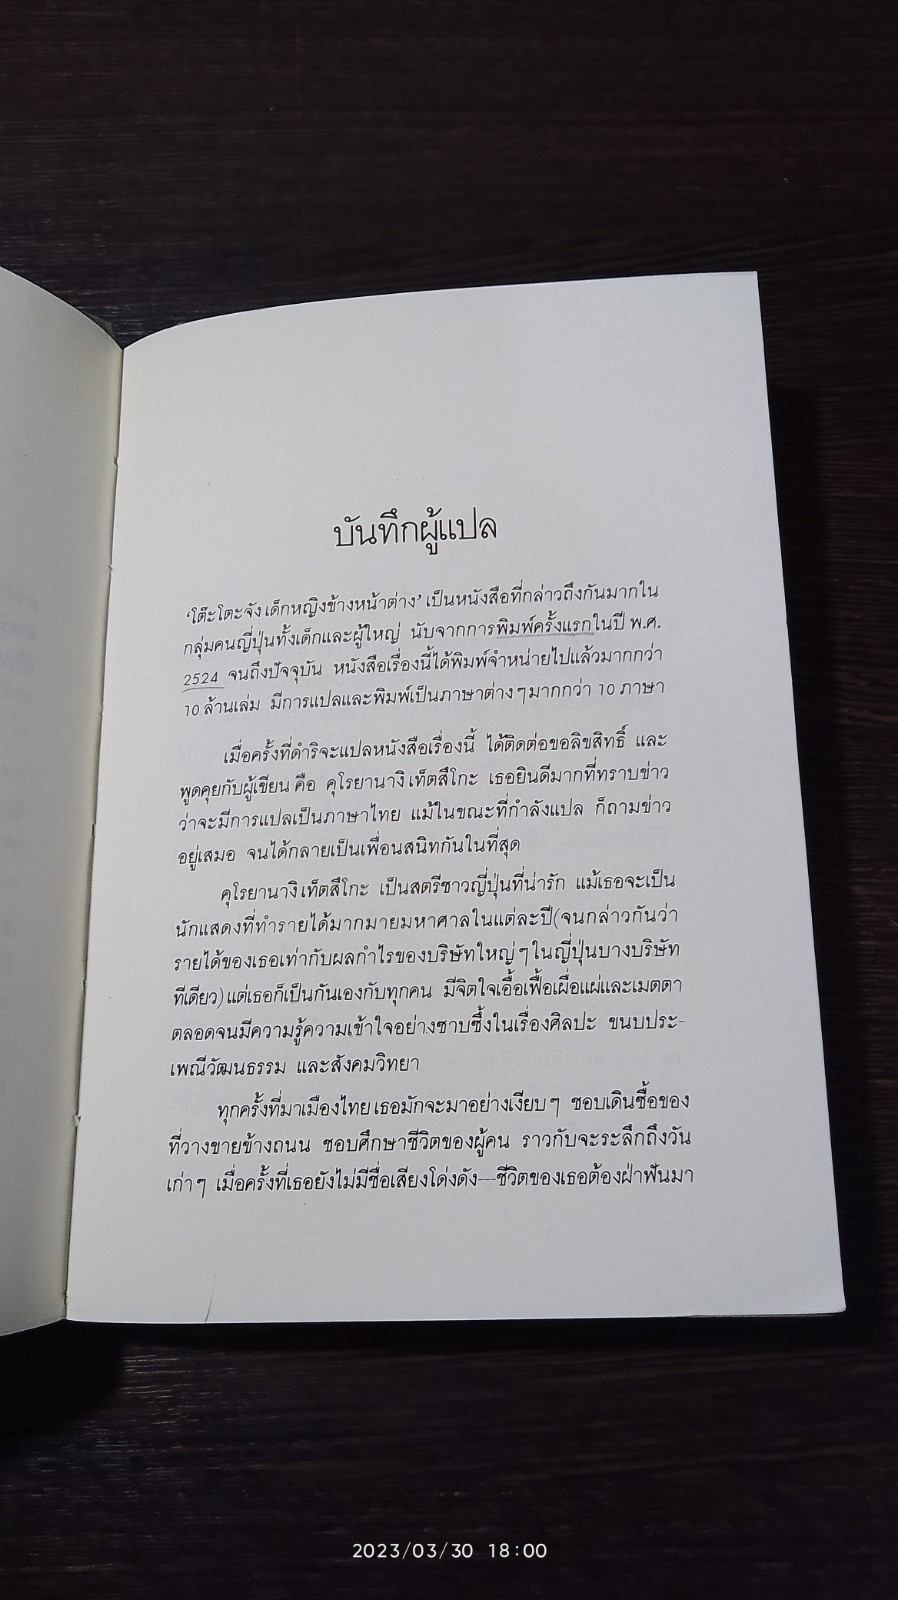 บันทึกผู้แปล
‘โต๊ะโตะจัง เด็กหญิงข้างหน้าต่าง’ เป็นหนังสือที่กล่าวถึงกันมากใน
กลุ่มคนญี่ปุ่นทั้งเด็กและผู้ใหญ่ นับจากการพิมพ์ครั้งแรกในปี พ.ศ.
2524 จนถึงปัจจุบัน หนังสือเรื่องนี้ได้พิมพ์จำหน่ายไปแล้วมากกว่า
10 ล้านเล่ม มีการแปลและพิมพ์เป็นภาษาต่างๆมากกว่า 10 ภาษา
เมื่อครั้งที่ดำริจะแปลหนังสือเรื่องนี้ ได้ติดต่อขอลิขสิทธิ์ และ
พูดคุยกับผู้เขียน คือ คุโรยานางิ เท็ตสึโกะ เธอยินดีมากที่ทราบข่าว
ว่าจะมีการแปลเป็นภาษาไทย แม้ในขณะที่กำลังแปล ก็ถามข่าว
อยู่เสมอ จนได้กลายเป็นเพื่อนสนิทกันในที่สุด
คุโรยานางิ เท็ตสึโกะ เป็นสตรีชาวญี่ปุ่นที่น่ารัก แม้เธอจะเป็น
นักแสดงที่ทำรายได้มากมายมหาศาลในแต่ละปี(จนกล่าวกันว่า
รายได้ของเธอเท่ากับผลกำไรของบริษัทใหญ่ๆในญี่ปุ่นบางบริษัท
ทีเดียว) แต่เธอก็เป็นกันเองกับทุกคน มีจิตใจเอื้อเฟื้อเผื่อแผ่และเมตตา
ตลอดจนมีความรู้ความเข้าใจอย่างซาบซึ้งในเรื่องศิลปะ ขนบประ-
เพณีวัฒนธรรม และสังคมวิทยา
ทุกครั้งที่มาเมืองไทย เธอมักจะมาอย่างเงียบๆ ชอบเดินซื้อของ
ที่วางขายข้างถนน ชอบศึกษาชีวิตของผู้คน ราวกับจะระลึกถึงวัน
เก่าๆ เมื่อครั้งที่เธอยังไม่มีชื่อเสียงโด่งดัง---ชีวิตของเธอต้องฝ่าฟันมา
2023/03/30 18:00